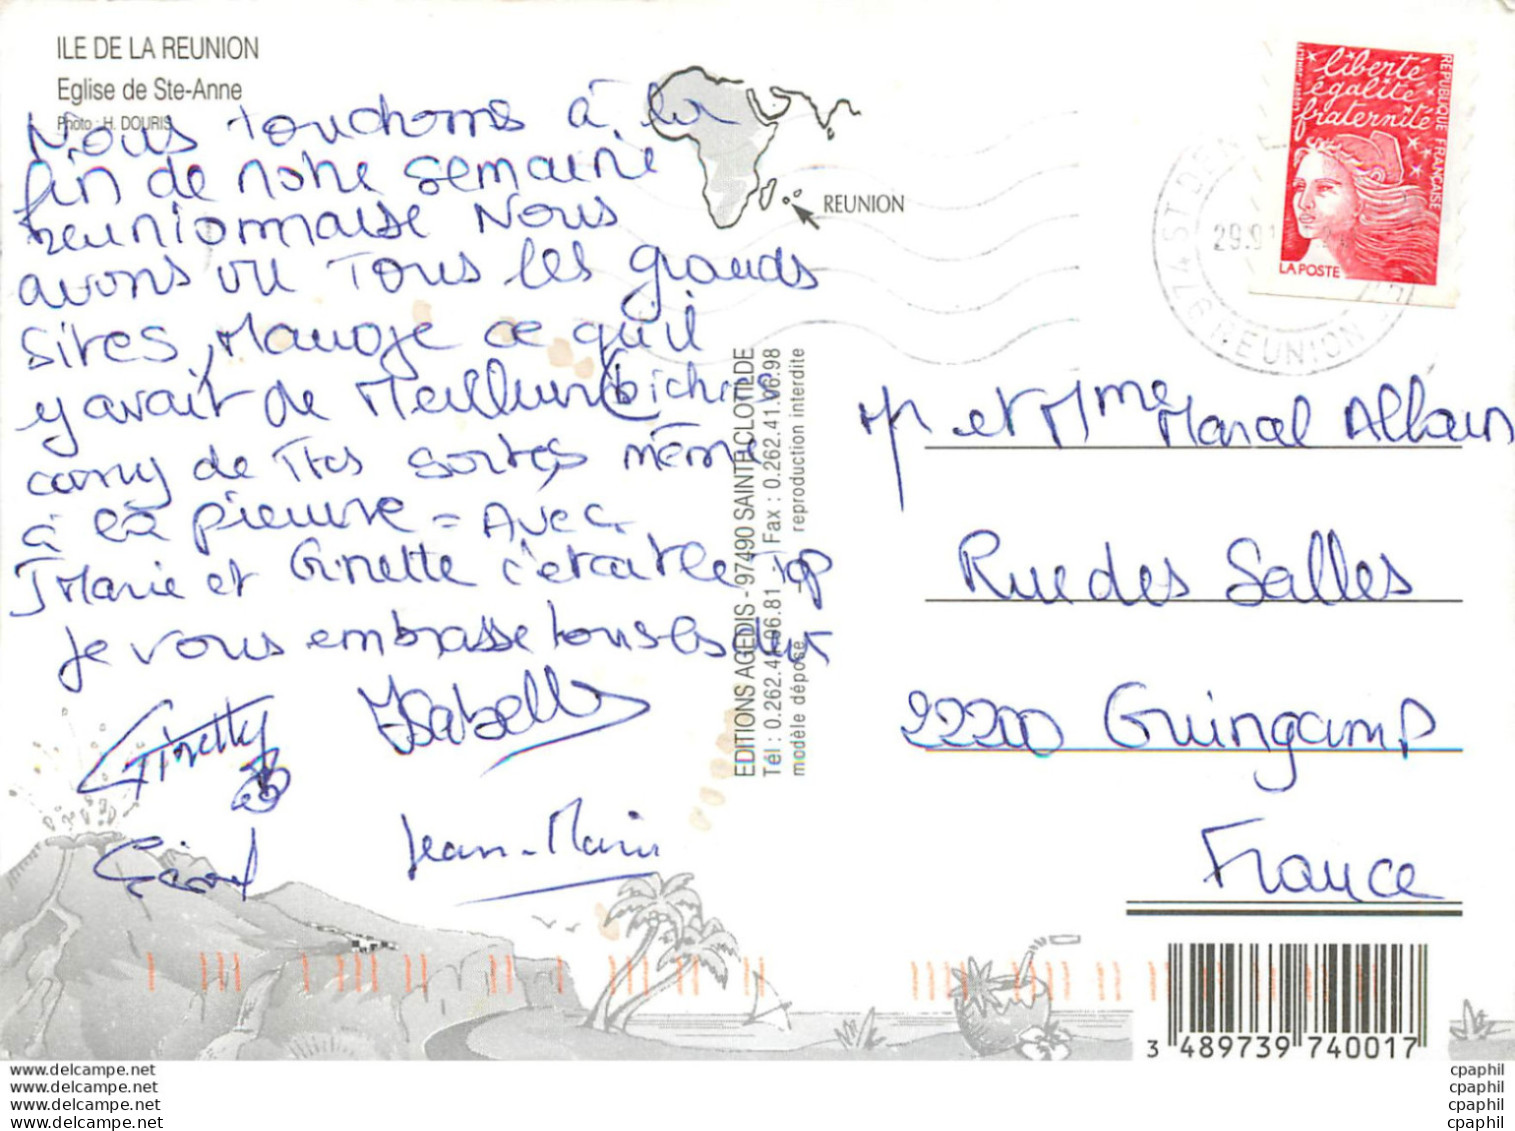 ILE DE LA REUNION
Eglise de Ste-Anne
Photo : H. DOURIS
Nous touchons à la
fin de notre semaine
reunionnaise Nous
avons vu tous les grands
sites, Mangé ce qu'il
y avait de Meilleur (
cary de ttes sortes même
à la pieuvre = Avec
J Marie et Ginette c'était le Top
je vous embrasse tous les deux
Ginette
Isabelle
Gérard
Jean-Marie
REUNION
EDITIONS AGEDIS - 97490 SAINTE CLOTILDE
Fax : 0.262.41.06.98
modèle déposé reproduction interdite
liberté
égalité
fraternité
RÉPUBLIQUE FRANÇAISE
LA POSTE
974 ST DENIS
REUNION
Mr et Mme Marcel Allain
Rue des Salles
22200 Guingamp
France
3 489739 740017
www.delcampe.net
www.delcampe.net
www.delcampe.net
www.delcampe.net
cpaphil
cpaphil
cpaphil
cpaphil